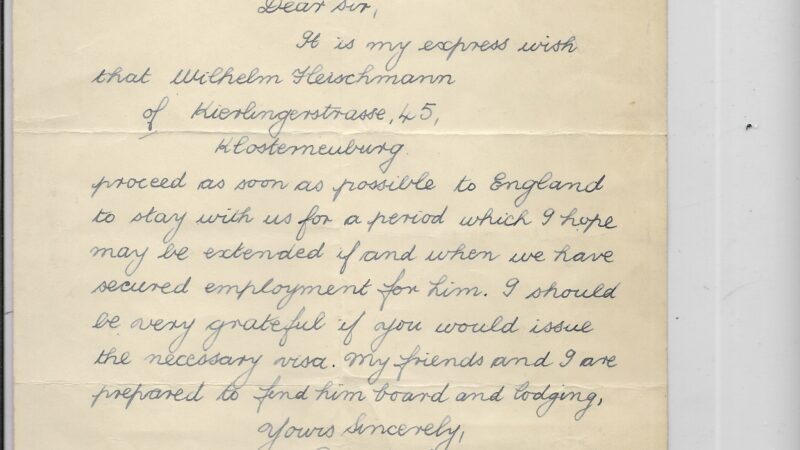 Dear Sir,
It is my express wish
that Wilhelm Fleischmann
of Kierlingerstrasse, 45,
Klosterneuburg.
proceed as soon as possible to England
to stay with us for a period which I hope
may be extended if and when we have
secured employment for him. I should
be very grateful if you would issue
the necessary visa. My friends and I are
prepared to find him board and lodging,
Yours Sincerely,